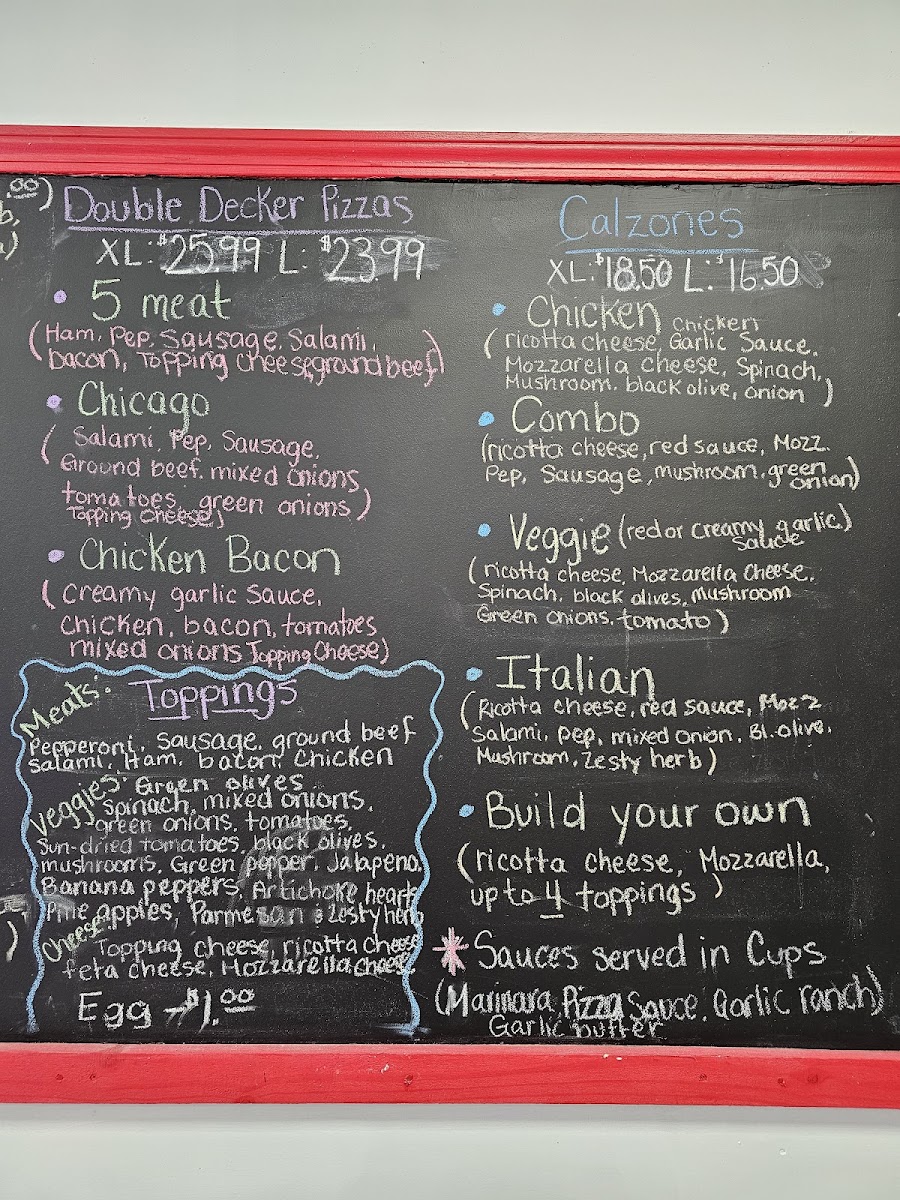 00)
b,
a)
Double Decker Pizzas
XL: $25.99 L: $23.99
• 5 meat
(Ham, Pep, Sausage, Salami,
bacon, Topping cheese, ground beef)
• Chicago
(Salami, Pep, Sausage,
Ground beef, mixed onions
tomatoes, green onions)
Topping Cheese)
• Chicken Bacon
(creamy garlic sauce,
chicken, bacon, tomatoes
mixed onions Topping Cheese)
Toppings
Meats:
Pepperoni, Sausage, ground beef
Salami, Ham, bacon, Chicken
Veggies: Green olives
Spinach, mixed onions,
green onions, tomatoes,
Sun-dried tomatoes, black olives,
mushrooms, Green pepper, Jalapeno,
Banana peppers, Artichoke heart
Pine apples, Parmesan & Zesty herb
Cheese: Topping cheese, ricotta cheese
feta cheese, Mozzarella cheese
Egg - $1.00
Calzones
XL: $18.50 L: $16.50
• Chicken Chicken
(ricotta cheese, Garlic Sauce,
Mozzarella cheese, Spinach,
Mushroom, black olive, onion)
• Combo
(ricotta cheese, red sauce, Mozz.
Pep, Sausage, mushroom, green
onion)
• Veggie (red or creamy garlic)
sauce
(ricotta cheese, Mozzarella cheese,
Spinach, black olives, mushroom
Green onions, tomato)
• Italian
(Ricotta cheese, red sauce, Mozz
Salami, pep, mixed onion, Bl. olive,
Mushroom, Zesty herb)
• Build your own
(ricotta cheese, Mozzarella,
up to 4 toppings)
* Sauces served in Cups
(Marinara, Pizza Sauce, Garlic ranch)
Garlic butter